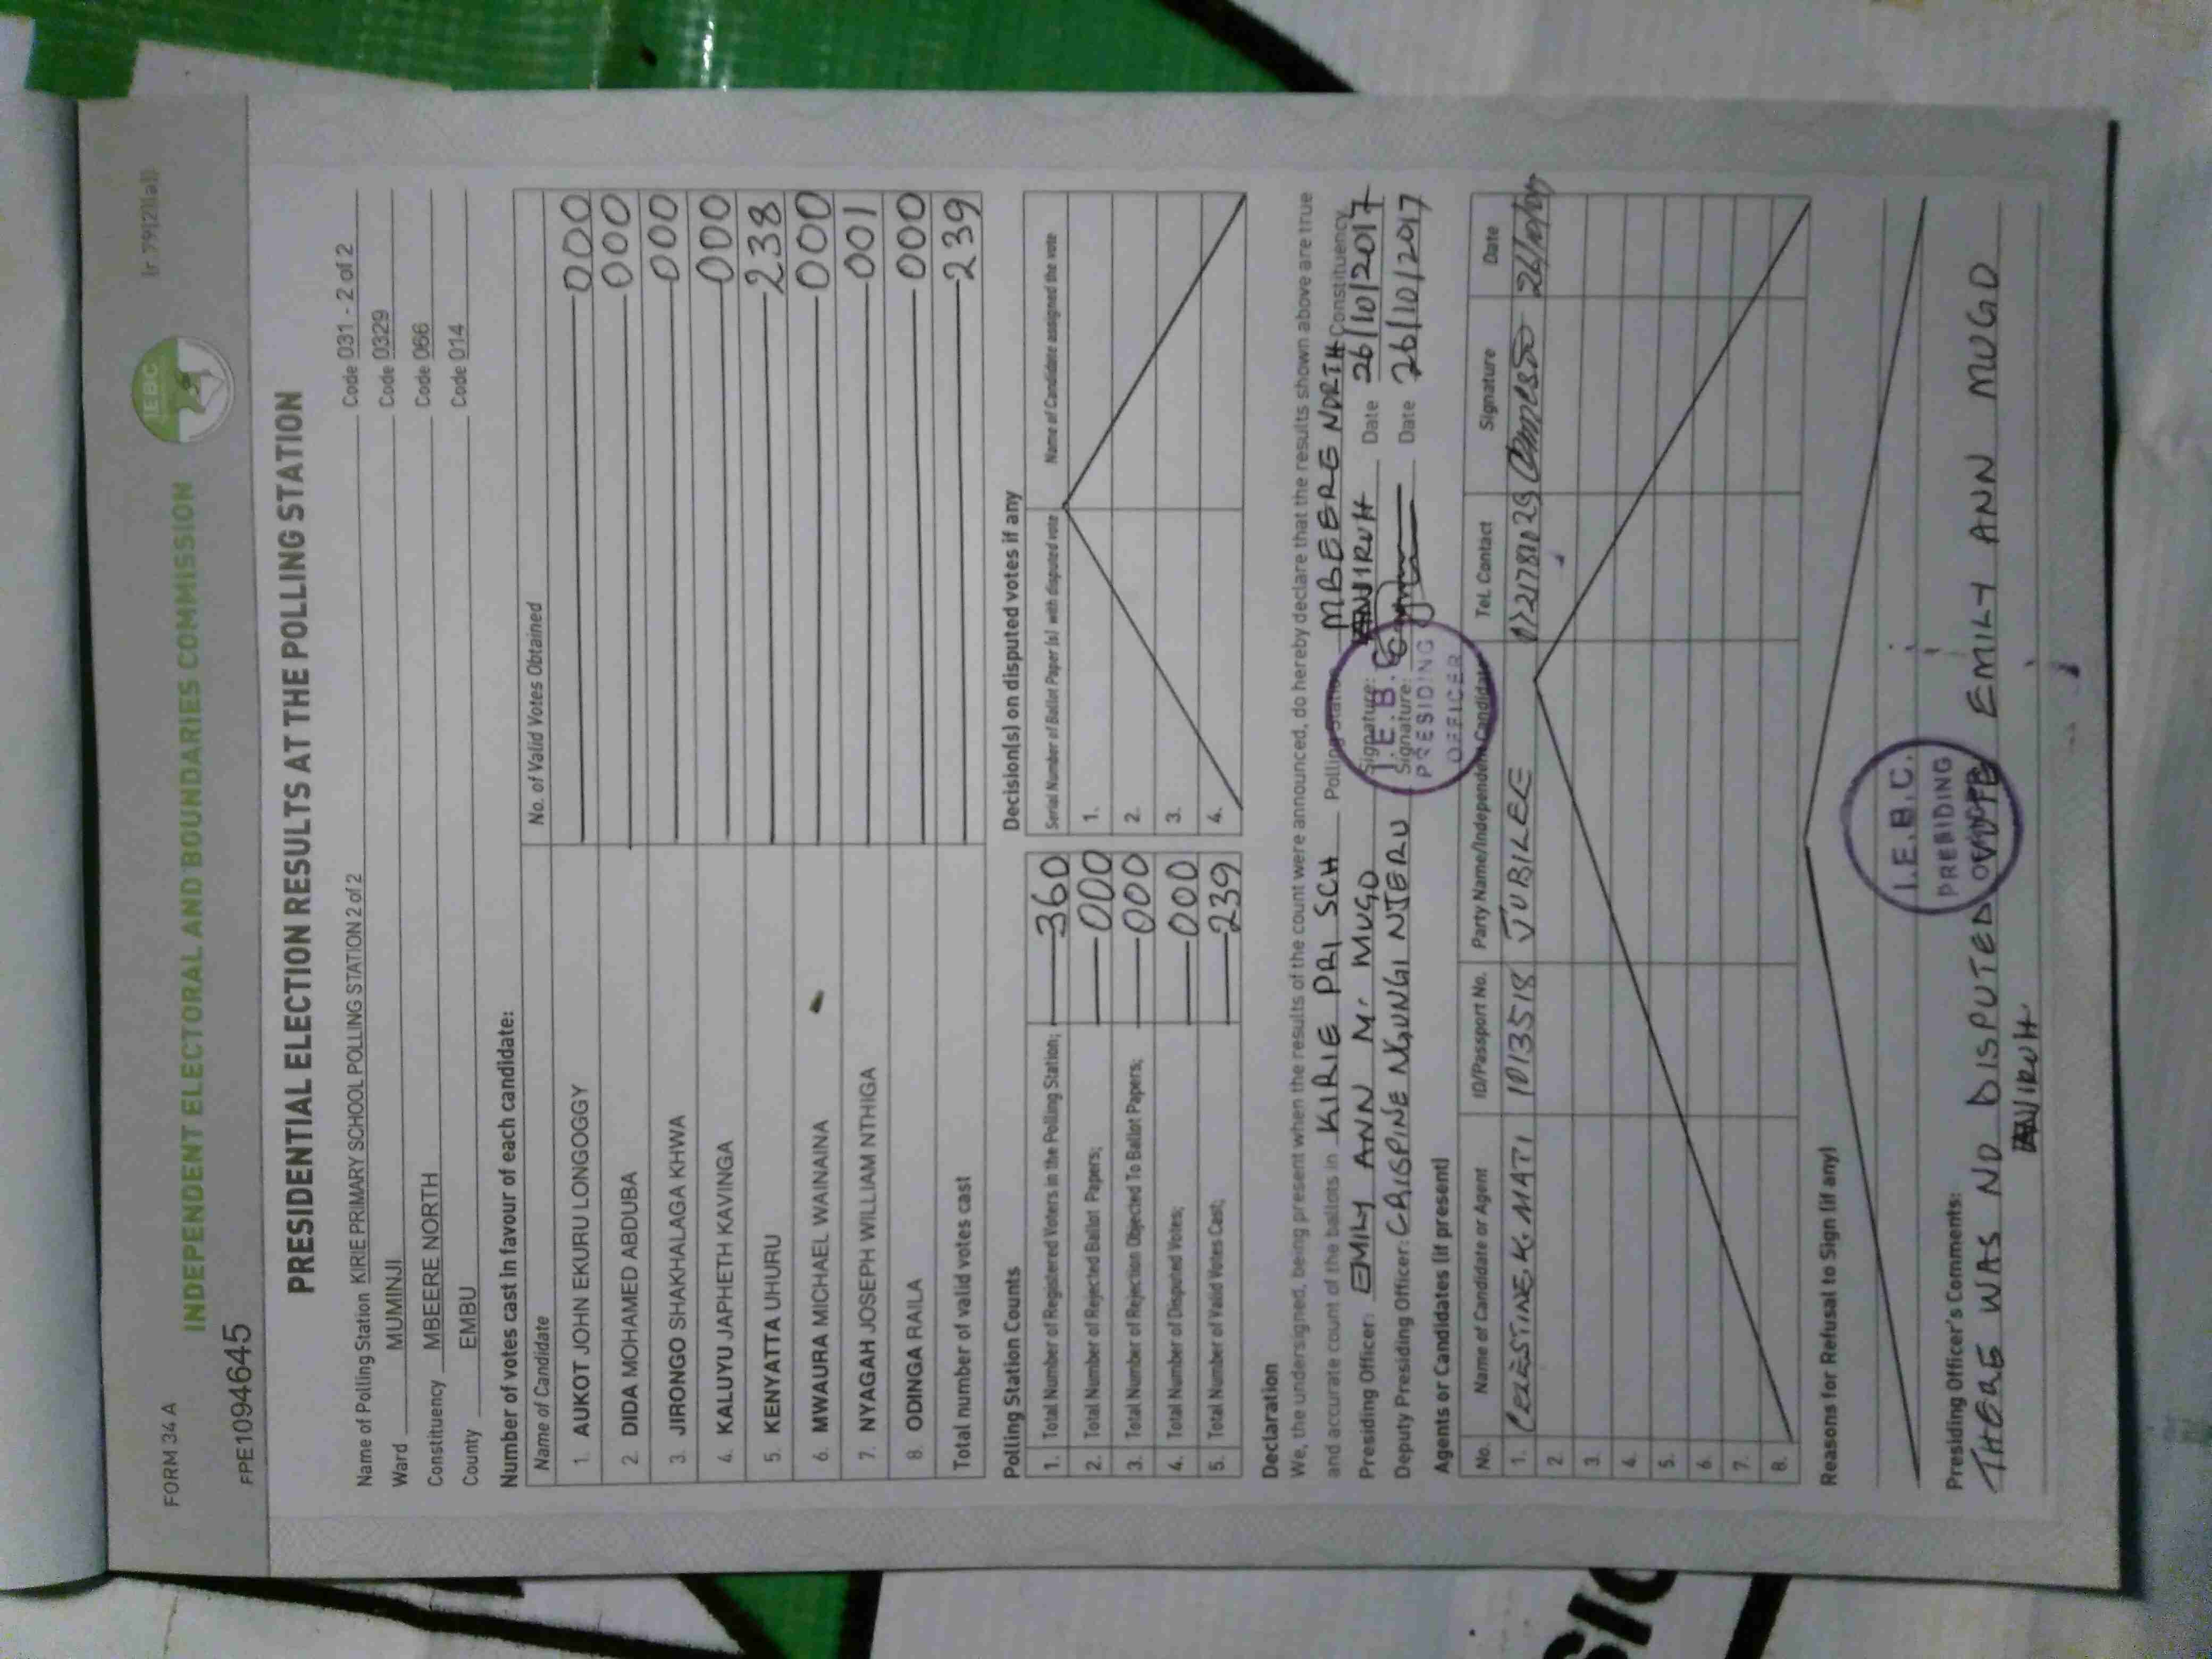 FORM 34 A
(r 79(2)(a))
INDEPENDENT ELECTORAL AND BOUNDARIES COMMISSION
IEBC
FPE1094645
PRESIDENTIAL ELECTION RESULTS AT THE POLLING STATION
Name of Polling Station KIRIE PRIMARY SCHOOL POLLING STATION 2 of 2 Code 031 - 2 of 2
Ward MUMINJI Code 0329
Constituency MBEERE NORTH Code 066
County EMBU Code 014
Number of votes cast in favour of each candidate:
Name of Candidate No. of Valid Votes Obtained
1. AUKOT JOHN EKURU LONGOGGY 000
2. DIDA MOHAMED ABDUBA 000
3. JIRONGO SHAKHALAGA KHWA 000
4. KALUYU JAPHETH KAVINGA 000
5. KENYATTA UHURU 238
6. MWAURA MICHAEL WAINAINA 000
7. NYAGAH JOSEPH WILLIAM NTHIGA 001
8. ODINGA RAILA 000
Total number of valid votes cast 239
Polling Station Counts
1. Total Number of Registered Voters in the Polling Station; 360
2. Total Number of Rejected Ballot Papers; 000
3. Total Number of Rejection Objected To Ballot Papers; 000
4. Total Number of Disputed Votes; 000
5. Total Number of Valid Votes Cast; 239
Decision(s) on disputed votes if any
Serial Number of Ballot Paper (s) with disputed vote Name of Candidate assigned the vote
1.
2.
3.
4.
Declaration
We, the undersigned, being present when the results of the count were announced, do hereby declare that the results shown above are true
and accurate count of the ballots in KIRIE PRI SCH Polling Station MBEERE NORTH Constituency
Presiding Officer: EMILY ANN M. MUGO Signature: Date 26/10/2017
Deputy Presiding Officer: CRISPINE NGUNGI NJERU Signature: Date 26/10/2017
I.E.B.C
PRESIDING
OFFICER
Agents or Candidates (if present)
No. Name of Candidate or Agent ID/Passport No. Party Name/Independent Candidate Tel. Contact Signature Date
1. CELESTINE K. MATI 10135518 JUBILEE
2.
3.
4.
5.
6.
7.
8.
Reasons for Refusal to Sign (if any)
I.E.B.C.
PRESIDING
Presiding Officer's Comments:
THERE WAS NO DISPUTED VOTE EMILY ANN MUGO